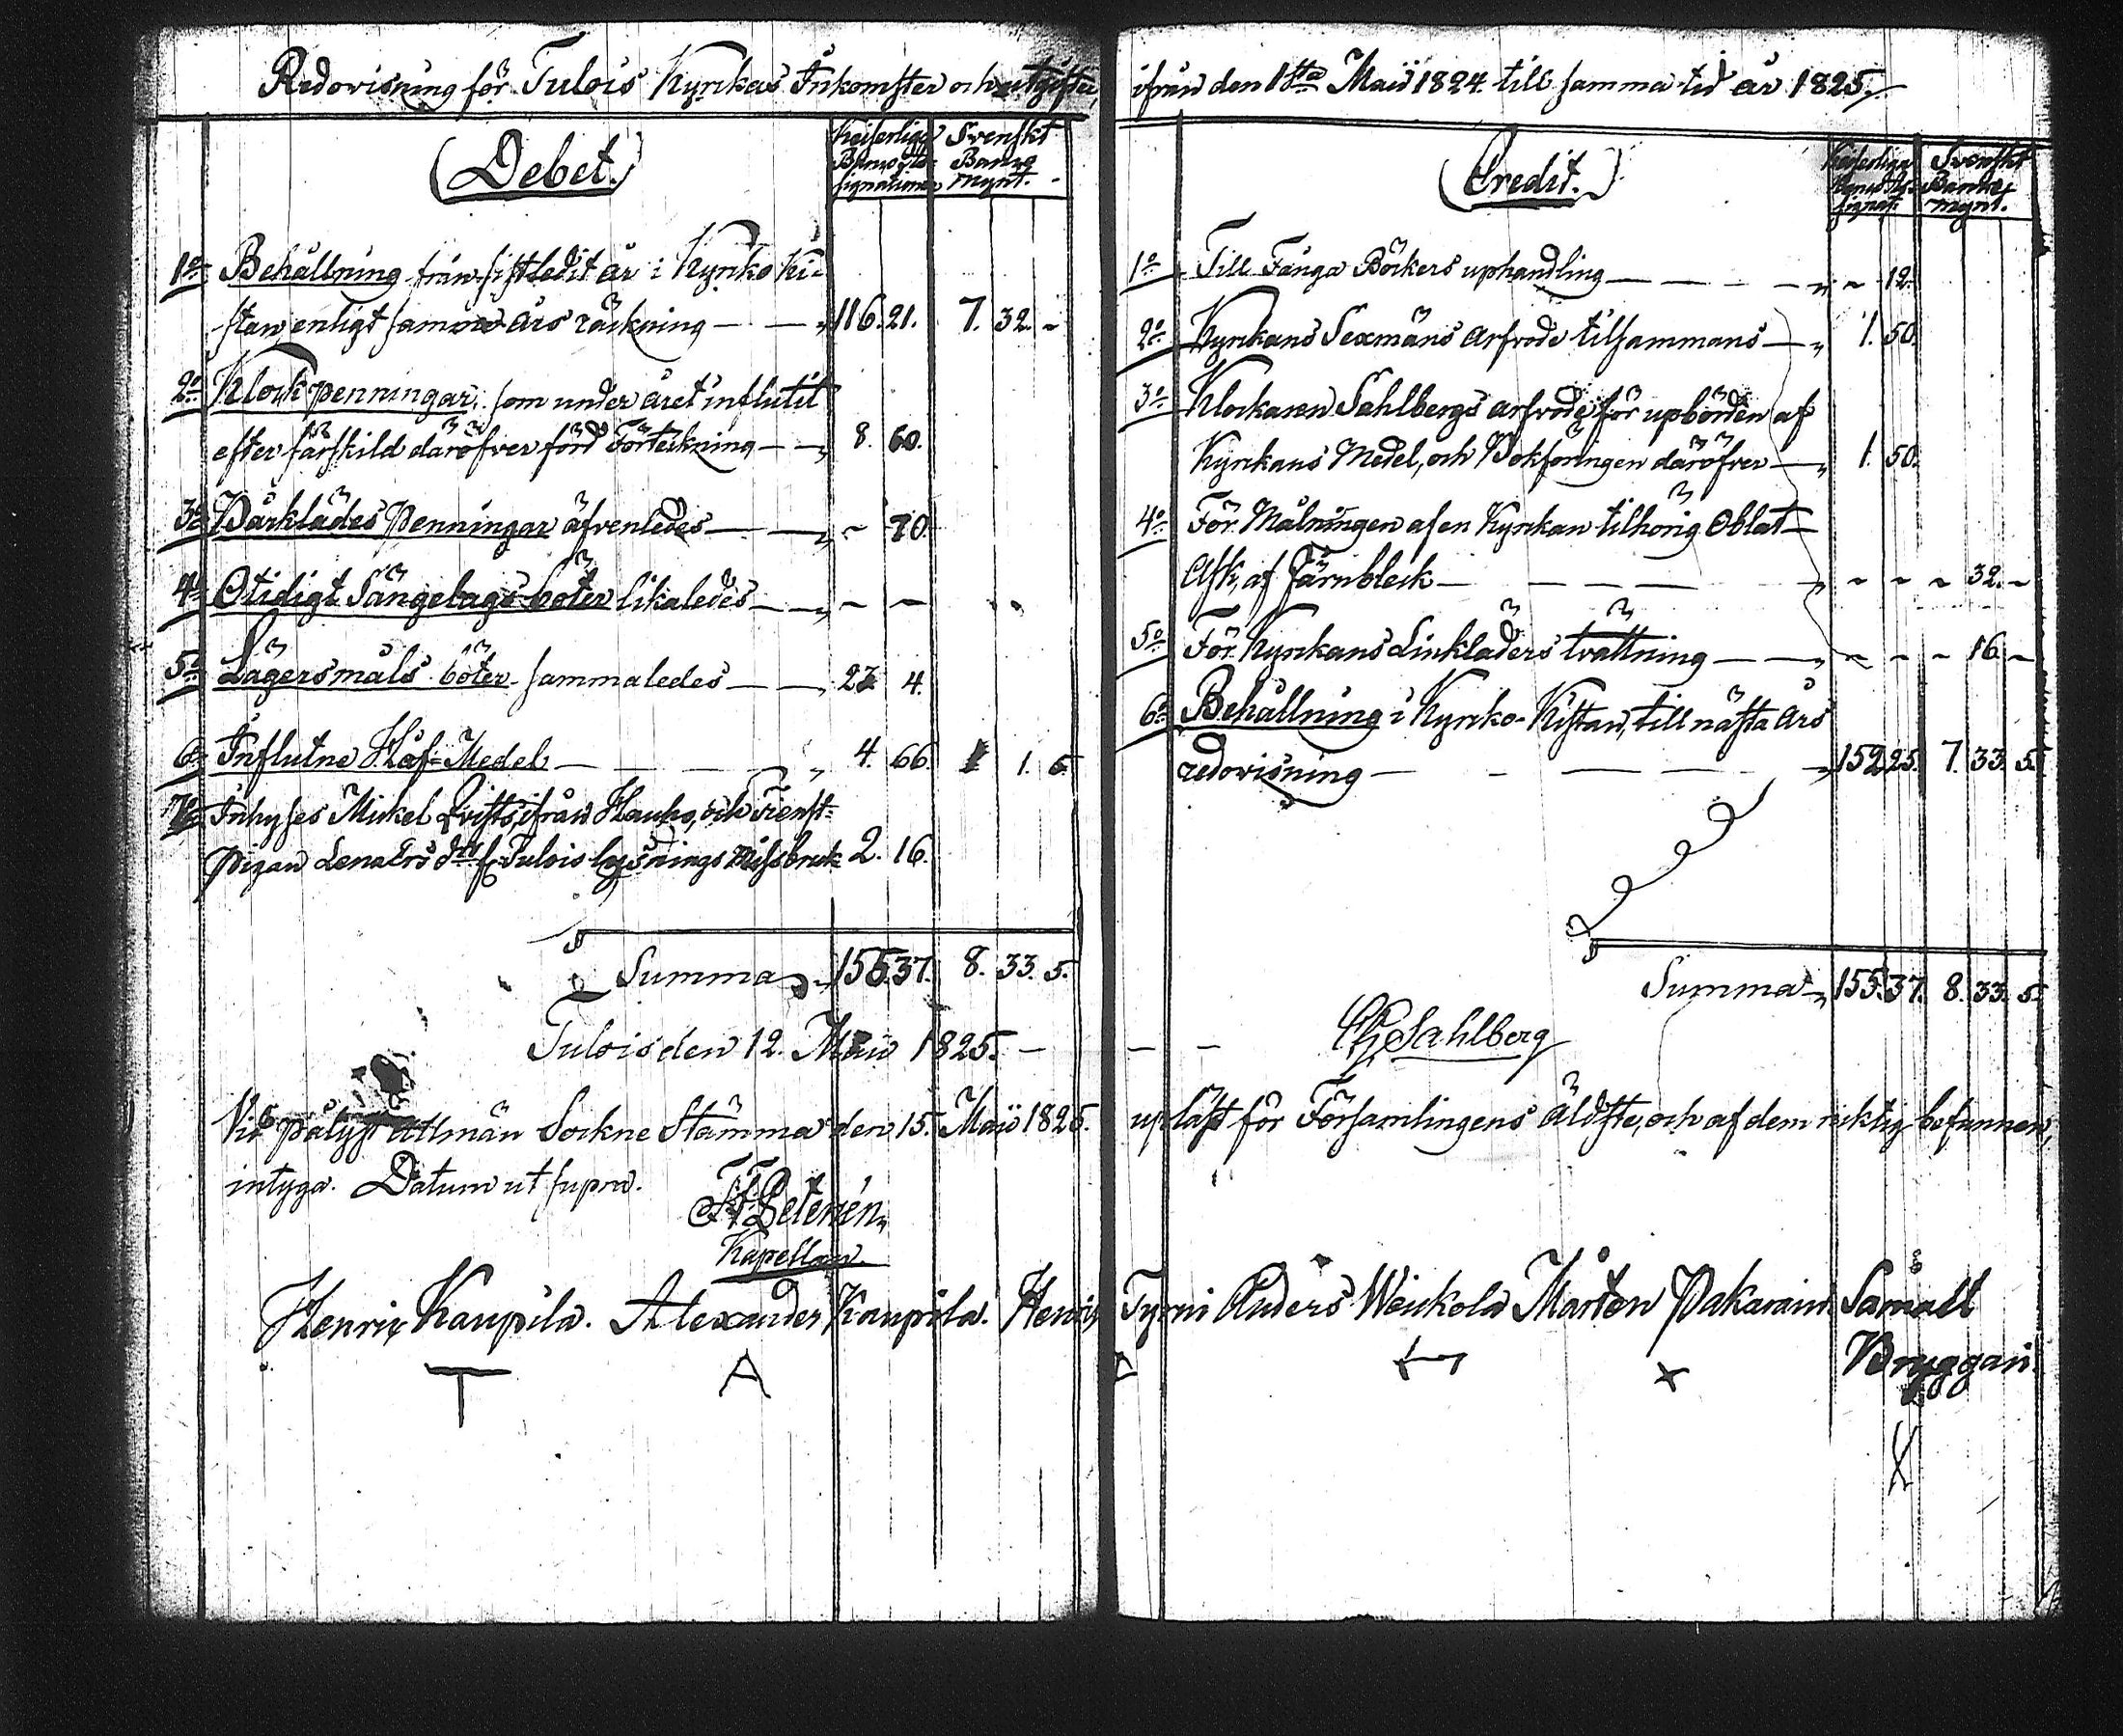 Redovisning för Tulois Kyrkas Inkomster och utgifter,
(Debet.)
Keiserliga Banco As-signationer
Svenskt Banco mynt.
1o Behållning från sistledit år i Kyrko Ki-
stan enligt samma års räckning — — 116. 21. 7. 32. -
2o Klock penningar, som under året influtit
efter särskild däröfver förd Förtekning — 8. 60.
3o Bårklädes Penningar äfvenledes — — - 70.
4o Otidigt Sängelags böter likaledes — — - -
5o Lägersmåls böter sammaledes — — 23 4.
6o Influtne Håf-Medel — — — 4. 66. 1 1. 5.
7o Inhyses Mickel Qvists ifrån Hauho, och Tienst-
Pigan Lena Ers dtr f. Tulois lysnings Missbruk 2. 16.
Summa 155. 37. 8. 33. 5.
Tulois den 12. Maii 1825. —
Vid pålyst allmän Sockne Stämma den 15. Maii 1825.
intyga. Datum ut supra.
Kapellan
Henric Kaupila. Alexander Kaupila. Henric
T A
ifrån den 1sta Maii 1824 till samma tid år 1825.
(Credit.)
Keiserliga Banco As-signat:
Svenskt Banco mynt.
1o Till Fånga Böckers uphandling — — - 12.
2o Kyrkans Sexmäns arfvode tilsammans — 1. 50.
3o Klockaren Sahlbergs arfvode för upbörden af
Kyrkans Medel, och Bokföringen däröfver — 1. 50.
4o För Målningen af en Kyrkan tilhörig Oblat-
Ask, af Järnbleck — — — - - - 32. -
5o För Kyrkans Linkläders tvättning — — - - - 16. -
6o Behållning i Kyrko-Kistan, till nästa års
redovisning — — — 152 25. 7. 33. 5.
Summa 155. 37. 8. 33. 5.
— — Sahlberg
upläst för Församlingens Äldste, och af dem riktig befunnen,
Tyrni Anders Weickola Mårten Pakarain Samuel
Bryggari
X
X